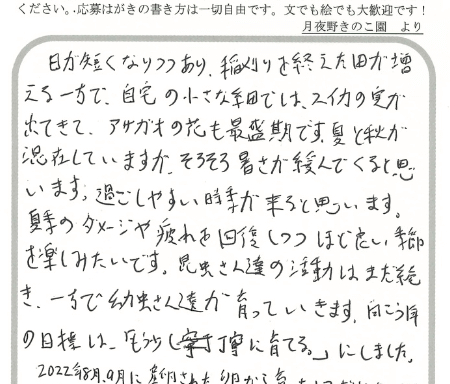 ください。.応募はがきの書き方は一切自由です。文でも絵でも大歓迎です！
月夜野きのこ園　より
日が短くなりつつあり、稲刈りを終えた田が増
える一方で、自宅の小さな畑では、スイカの実が
出てきて、アサガオの花も最盛期です。夏と秋が
混在していますが、そろそろ暑さが緩んでくると思
います。過ごしやすい時季が来ると思います。
夏季のダメージや疲れを回復しつつほど良い季節
を楽しみたいです。昆虫さん達の活動はまだ続
き、一方で幼虫さん達が育っていきます。向こう1年
の目標は、「もう少し丁寧に育てる。」にしました。
2022年8月、9月に産卵された卵から